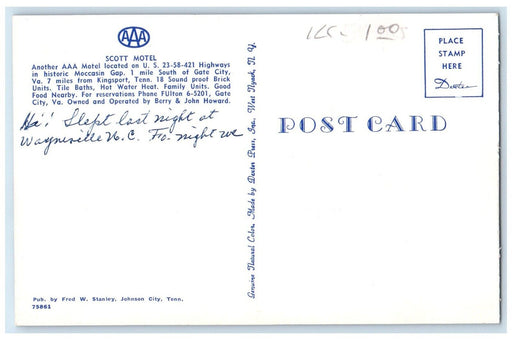 AAA
SCOTT MOTEL
Another AAA Motel located on U. S. 23-58-421 Highways
in historic Moccasin Gap. 1 mile South of Gate City,
Va. 7 miles from Kingsport, Tenn. 18 Sound proof Brick
Units. Tile Baths, Hot Water Heat. Family Units. Good
Food Nearby. For reservations Phone FUlton 6-5201, Gate
City, Va. Owned and Operated by Berry & John Howard.
Hi! Slept last night at
Waynesville N.C. To-night we
Pub. by Fred W. Stanley, Johnson City, Tenn.
75861
Genuine Natural Color. Made by Dexter Press, Inc. West Nyack, N. Y.
1.00
POST CARD
PLACE
STAMP
HERE
Dexter